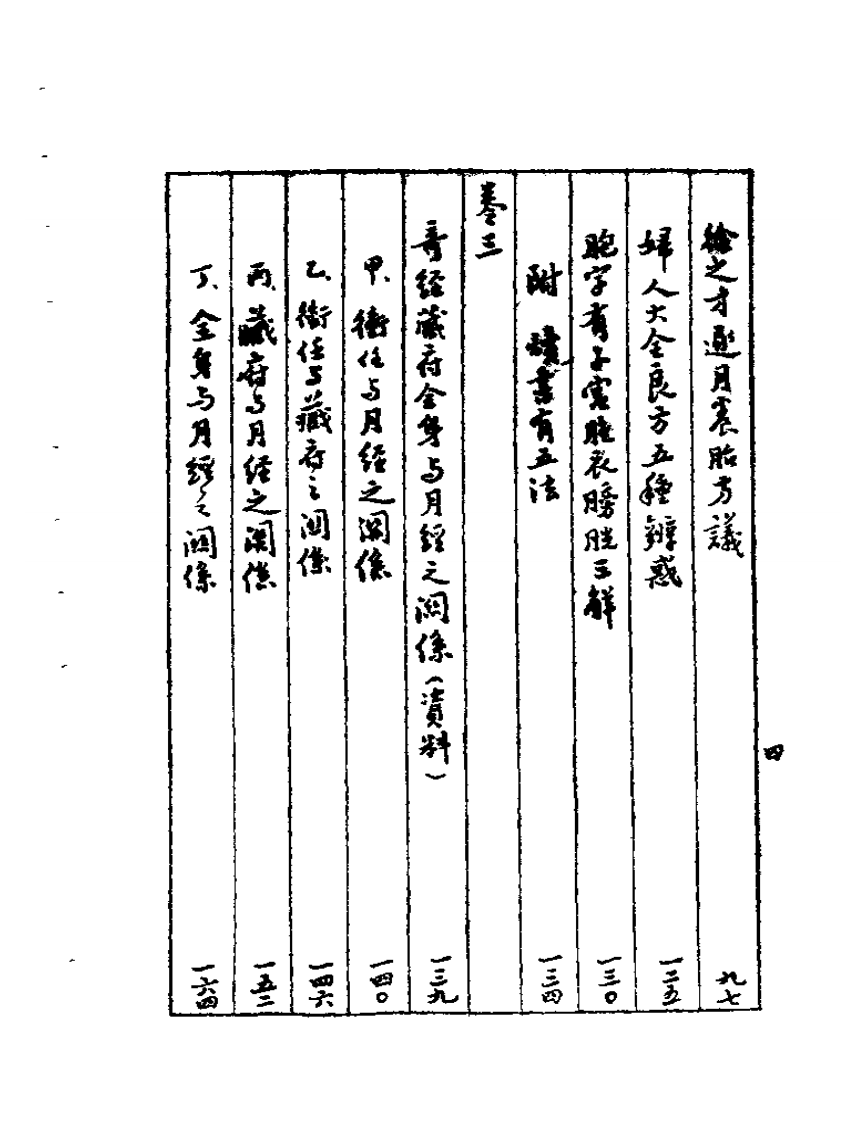 徐之才逐月养胎方議 九七
婦人大全良方五種辨惑 一二五
胞字有子宮胜衣膀胱三解 一三〇
附 讀書有五法 一三四
卷三
奇经藏府全身与月經之関係(資料) 一三九
甲、衝任与月経之関係 一四〇
乙、衝任与藏府之関係 一四六
丙、藏府与月经之関係 一五二
丁、全身与月經之関係 一六四
四